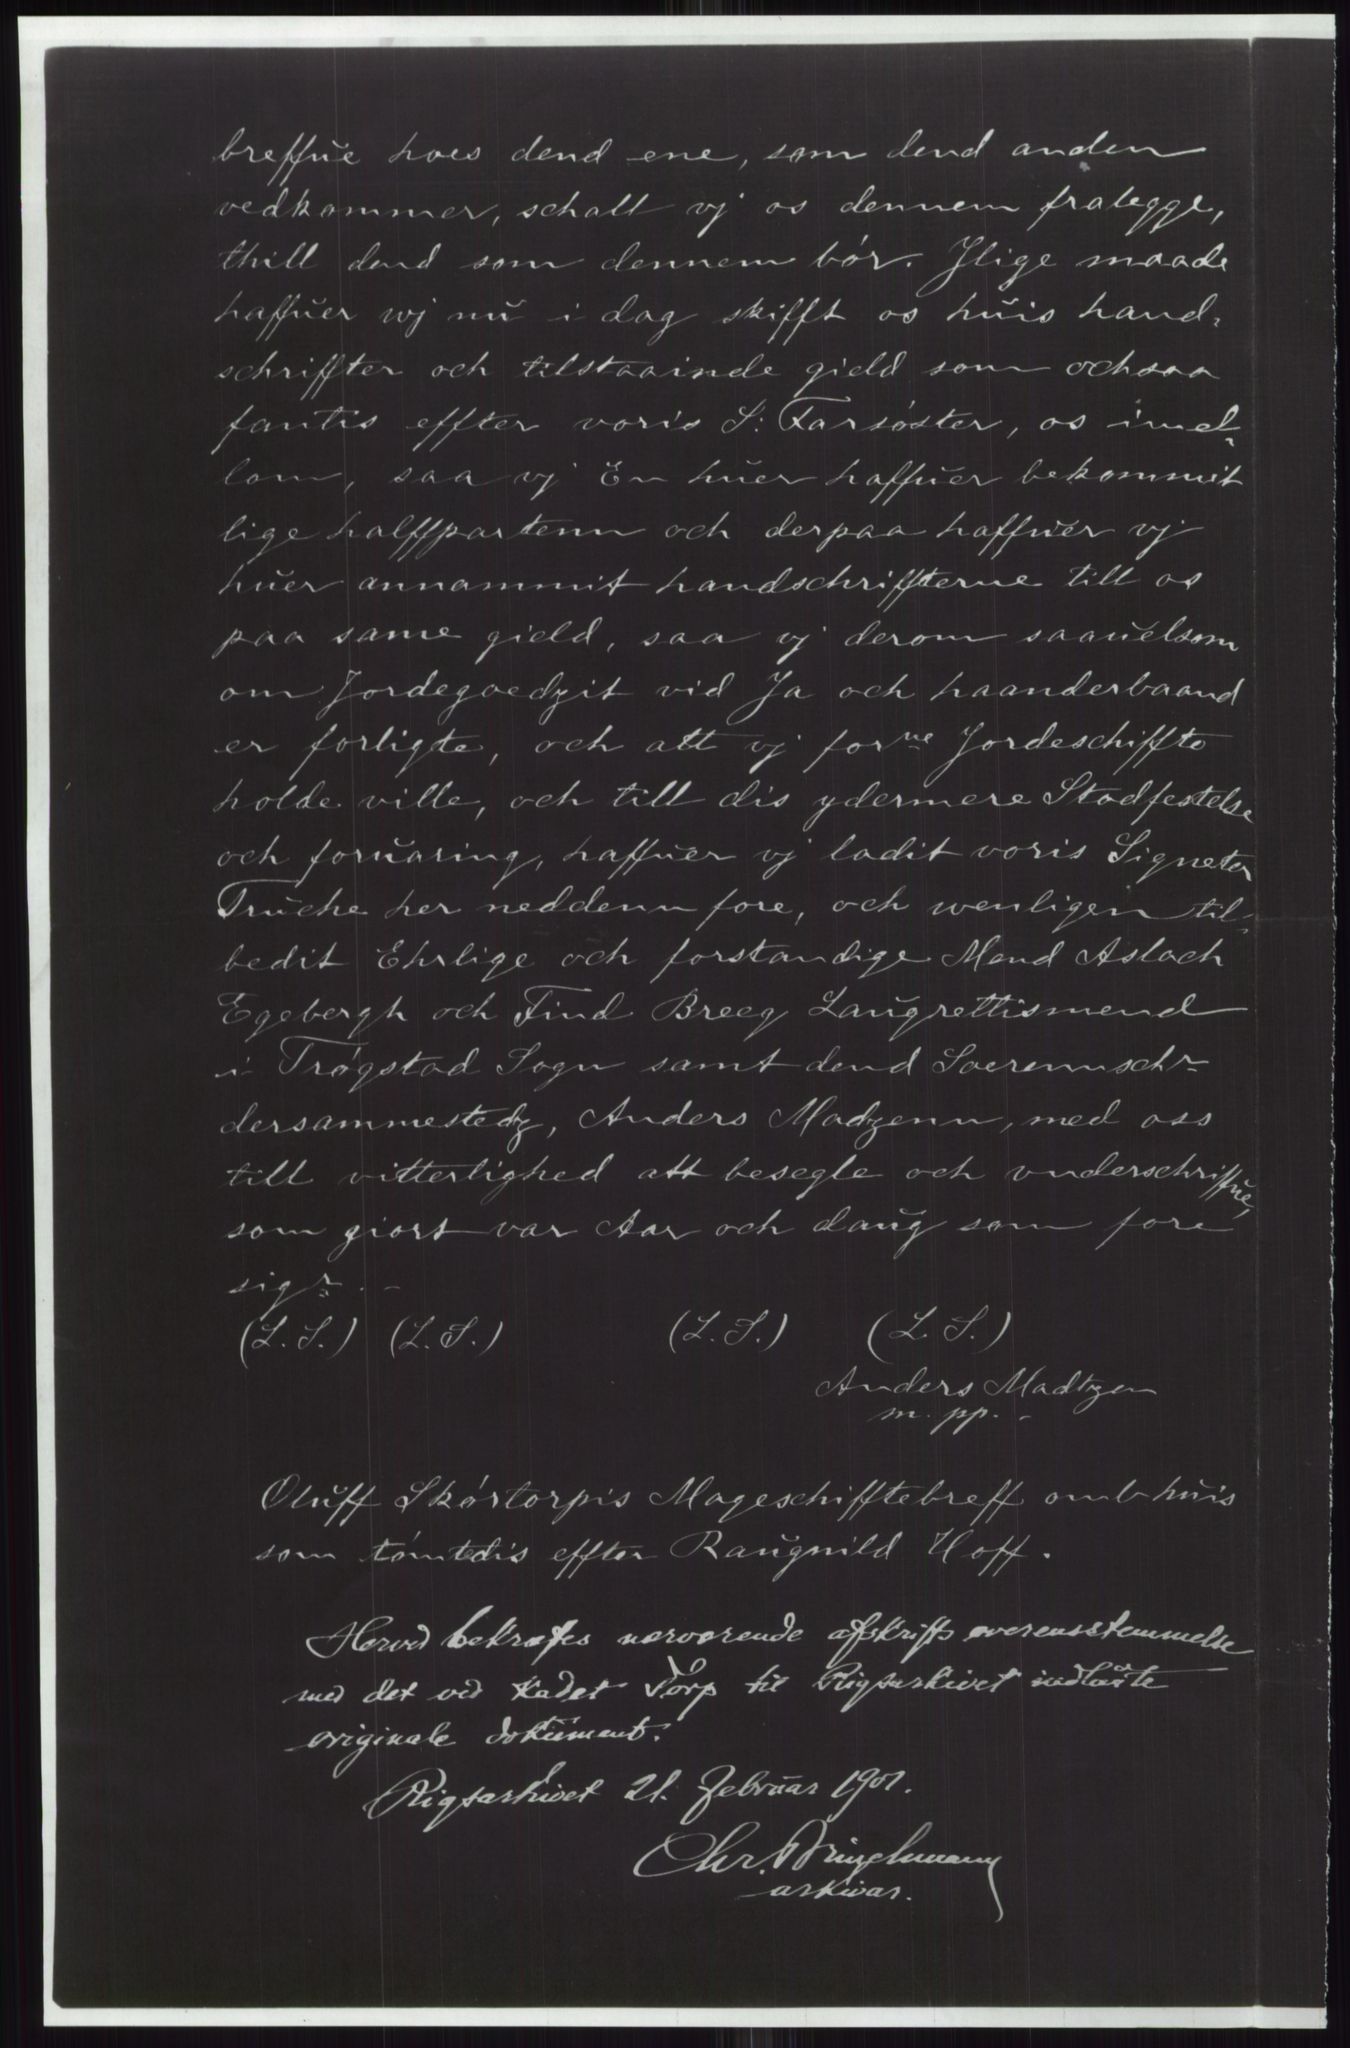 breffue hoes dend ene, som dend anden
vedkommer, schall vj os dennem fralegge,
thill dend som dennem bór. Jlige maade
haffuer wj nŭ i dag skifft os hŭis hand-
schriffter och tilstaainde gield som ochsaa
fantis effter voris S: Farsóster, os imel-
lom, saa vj En hŭer haffŭer bekommit
lige halffpartenn och derpaa haffŭer vj
hŭer annammit handschriffterne till os
paa same gield, saa vj derom saauelsom
om Jordegoedzit vid Ja och haanderbaand
er forligte, och att vj forne Jordeschiffte
holde ville, och till dis ydermere Stadfestelse
och forŭaring, haffŭer vj ladit voris Signeter
Trŭche her neddenn fore, och wenligen til-
bedit Ehrlige och forstandige Mend Aslach
Egebergh och Find Breeg Laŭgrettismend
i Trógstad Sogn samt dend Soerennschr
dersammestedz, Anders Madzenn, med oss
till vitterlighed att besegle och vnderschriffŭe,
som giort var Aar och daŭg som fore
sigr. -
(L. S.) (L. S.) (L. S.) (L. S.)
Anders Madtzen
m. pp. -
Olŭff Skórtorpis Mageschifftebreff omb hŭis
som tómtedis effter Raŭgnild Hoff.
Herved bekræftes nærværende afskrifts overensstemmelse
med det ved Kadet Torp til Rigsarkivet indlaante
originale dokŭment.
Rigsarkivet 21. Februar 1901.
Chr. Brinchmann
arkivar.